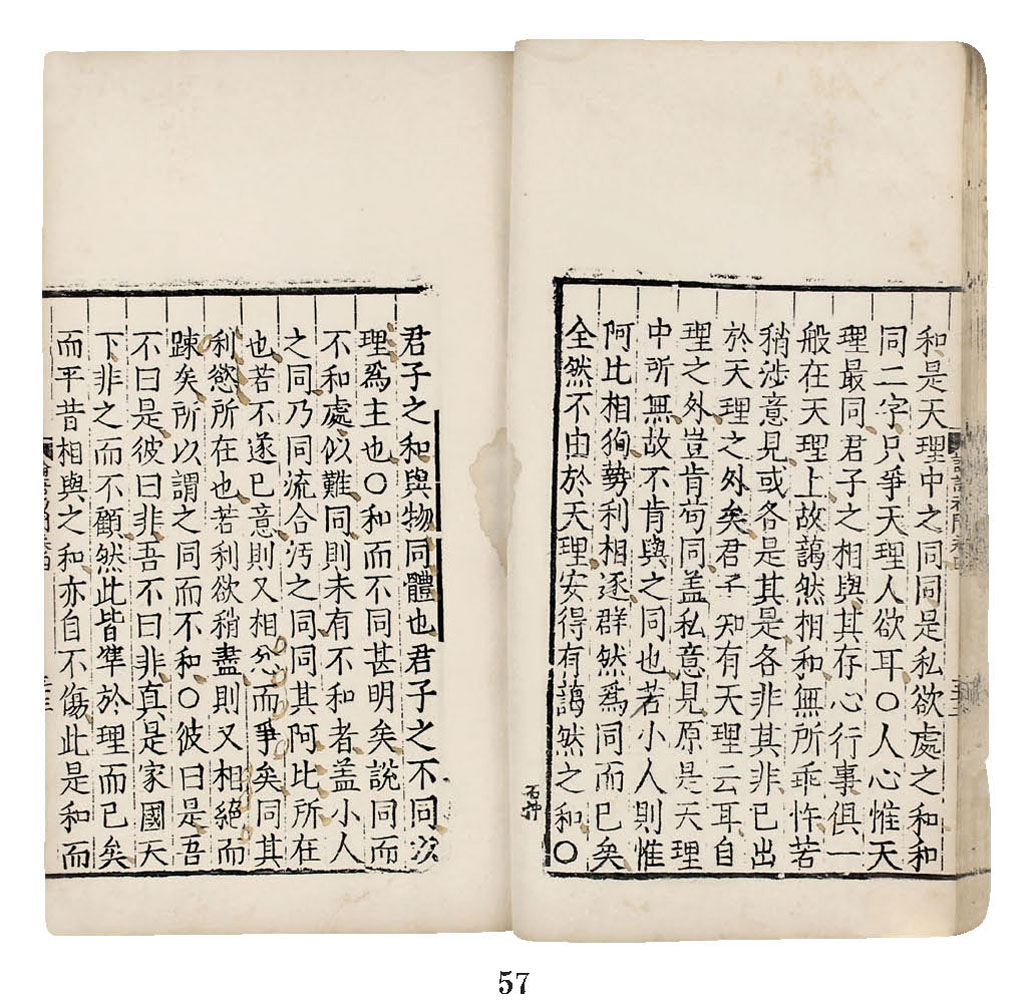 和是天理中之同同是私欲處之和和
同二字只爭天理人欲耳○人心惟天
理最同君子之相與其存心行事俱一
般在天理上故藹然相和無所乖忤若
稍涉意見或各是其是各非其非已出
於天理之外矣君子知有天理云耳自
理之外豈肯苟同盖私意見原是天理
中所無故不肯與之同也若小人則惟
阿比相狥勢利相逐群然爲同而已矣
全然不由於天理安得有藹然之和○
君子之和與物同體也君子之不同以
理爲主也○和而不同甚明矣說同而
不和處似難同則未有不和者盖小人
之同乃同流合汚之同同其阿比所在
也若不遂已意則又相忿而爭矣同其
利慾所在也若利欲稍盡則又相絕而
踈矣所以謂之同而不和○彼曰是吾
不曰是彼曰非吾不曰非真是家國天
下非之而不顧然此皆凖於理而已矣
而平昔相與之和亦自不傷此是和而
57